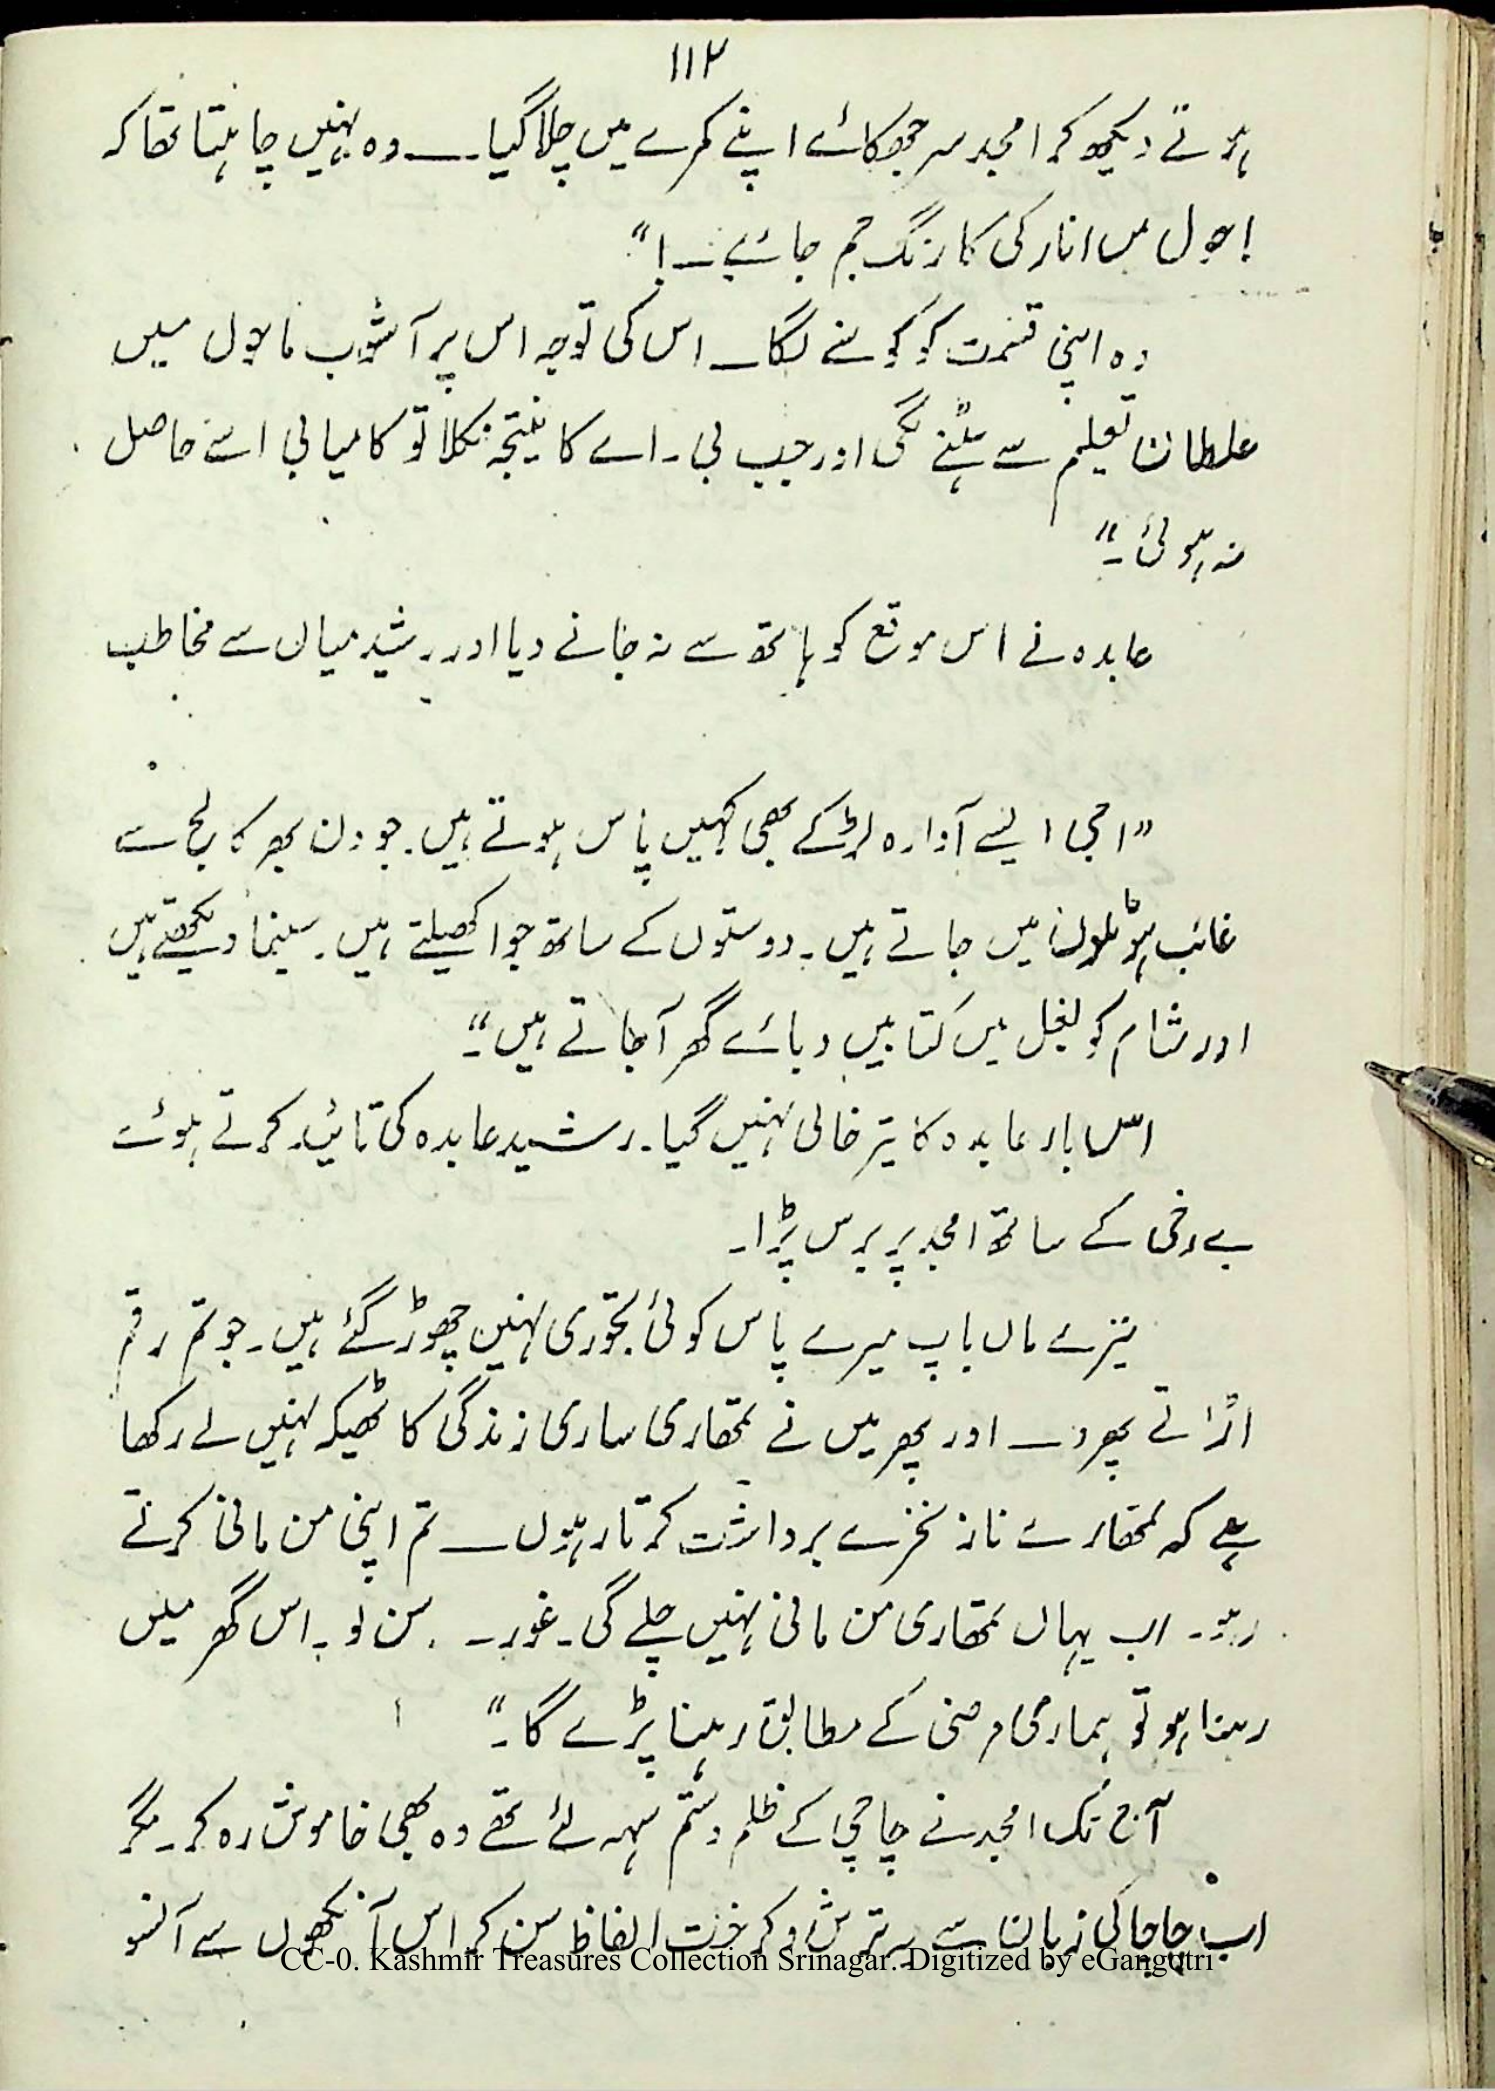 ۱۱۲
ہوتے دیکھ کر امجد سر جھکائے اپنے کمرے میں چلا گیا ــ وہ نہیں چاہتا تھا کہ
انارکی کا رنگ جم جائے ــ!"
وہ اپنی قسمت کو کوسنے لگا ــ اس کی توجہ اس پر آشوب ماحول میں
غلطاں تعلیم سے ہٹنے لگی اور جب بی۔اے کا نتیجہ نکلا تو کامیابی اسے حاصل
نہ ہوئی۔"
عابدہ نے اس موقع کو ہاتھ سے نہ جانے دیا اور رشید میاں سے مخاطب
"اجی ایسے آوارہ لڑکے بھی کہیں پاس ہوتے ہیں۔ جو دن بھر کالج سے
غائب ہوٹلوں میں جاتے ہیں۔ دوستوں کے ساتھ جوا کھیلتے ہیں۔ سینما دیکھتے ہیں
اور شام کو بغل میں کتابیں دبائے گھر آجاتے ہیں"۔
اس بار عابدہ کا تیر خالی نہیں گیا۔ رشید عابدہ کی تائید کرتے ہوئے
بے رخی کے ساتھ امجد پر برس پڑا۔
تیرے ماں باپ میرے پاس کوئی تجوری نہیں چھوڑ گئے ہیں۔ جو تم رقم
اڑاتے پھرو ــ اور پھر میں نے تمھاری ساری زندگی کا ٹھیکہ نہیں لے رکھا
ہے کہ تمھارے ناز نخرے برداشت کرتا رہوں ــ تم اپنی من مانی کرتے
رہو۔ اب یہاں تمھاری من مانی نہیں چلے گی۔ غور ۔ سن لو۔ اس گھر میں
رہنا ہو تو ہماری مرضی کے مطابق رہنا پڑے گا۔"
آج تک امجد نے چاچی کے ظلم و ستم سہہ لئے تھے وہ بھی خاموش رہ کر۔ مگر
اب چاچا کی زبان سے یہ ترش و کرخت الفاظ سن کر اس آنکھوں سے آنسو
CC-0. Kashmir Treasures Collection Srinagar. Digitized by eGangotri